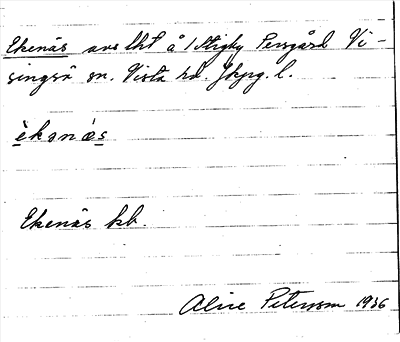 Ekenäs avs lht å 1 Stigby Persgård Vi-
singsö sn. Vista hd. Jkpg. l.
èkənä́s
Ekenäs kb.
Alice Petersson 1936